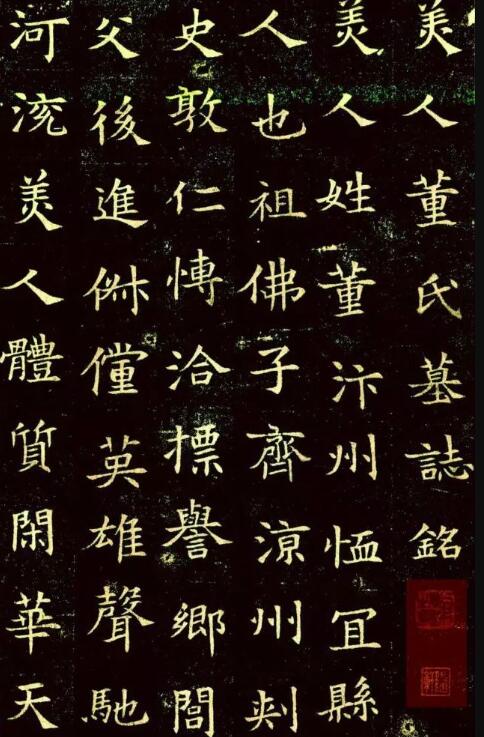 美人董氏墓誌銘
美人姓董汴州恤冝縣
人也祖佛子齊涼州刾
史敦仁愽洽標譽鄉閭
父後進俶儻英雄聲馳
河渷美人體質閑華天